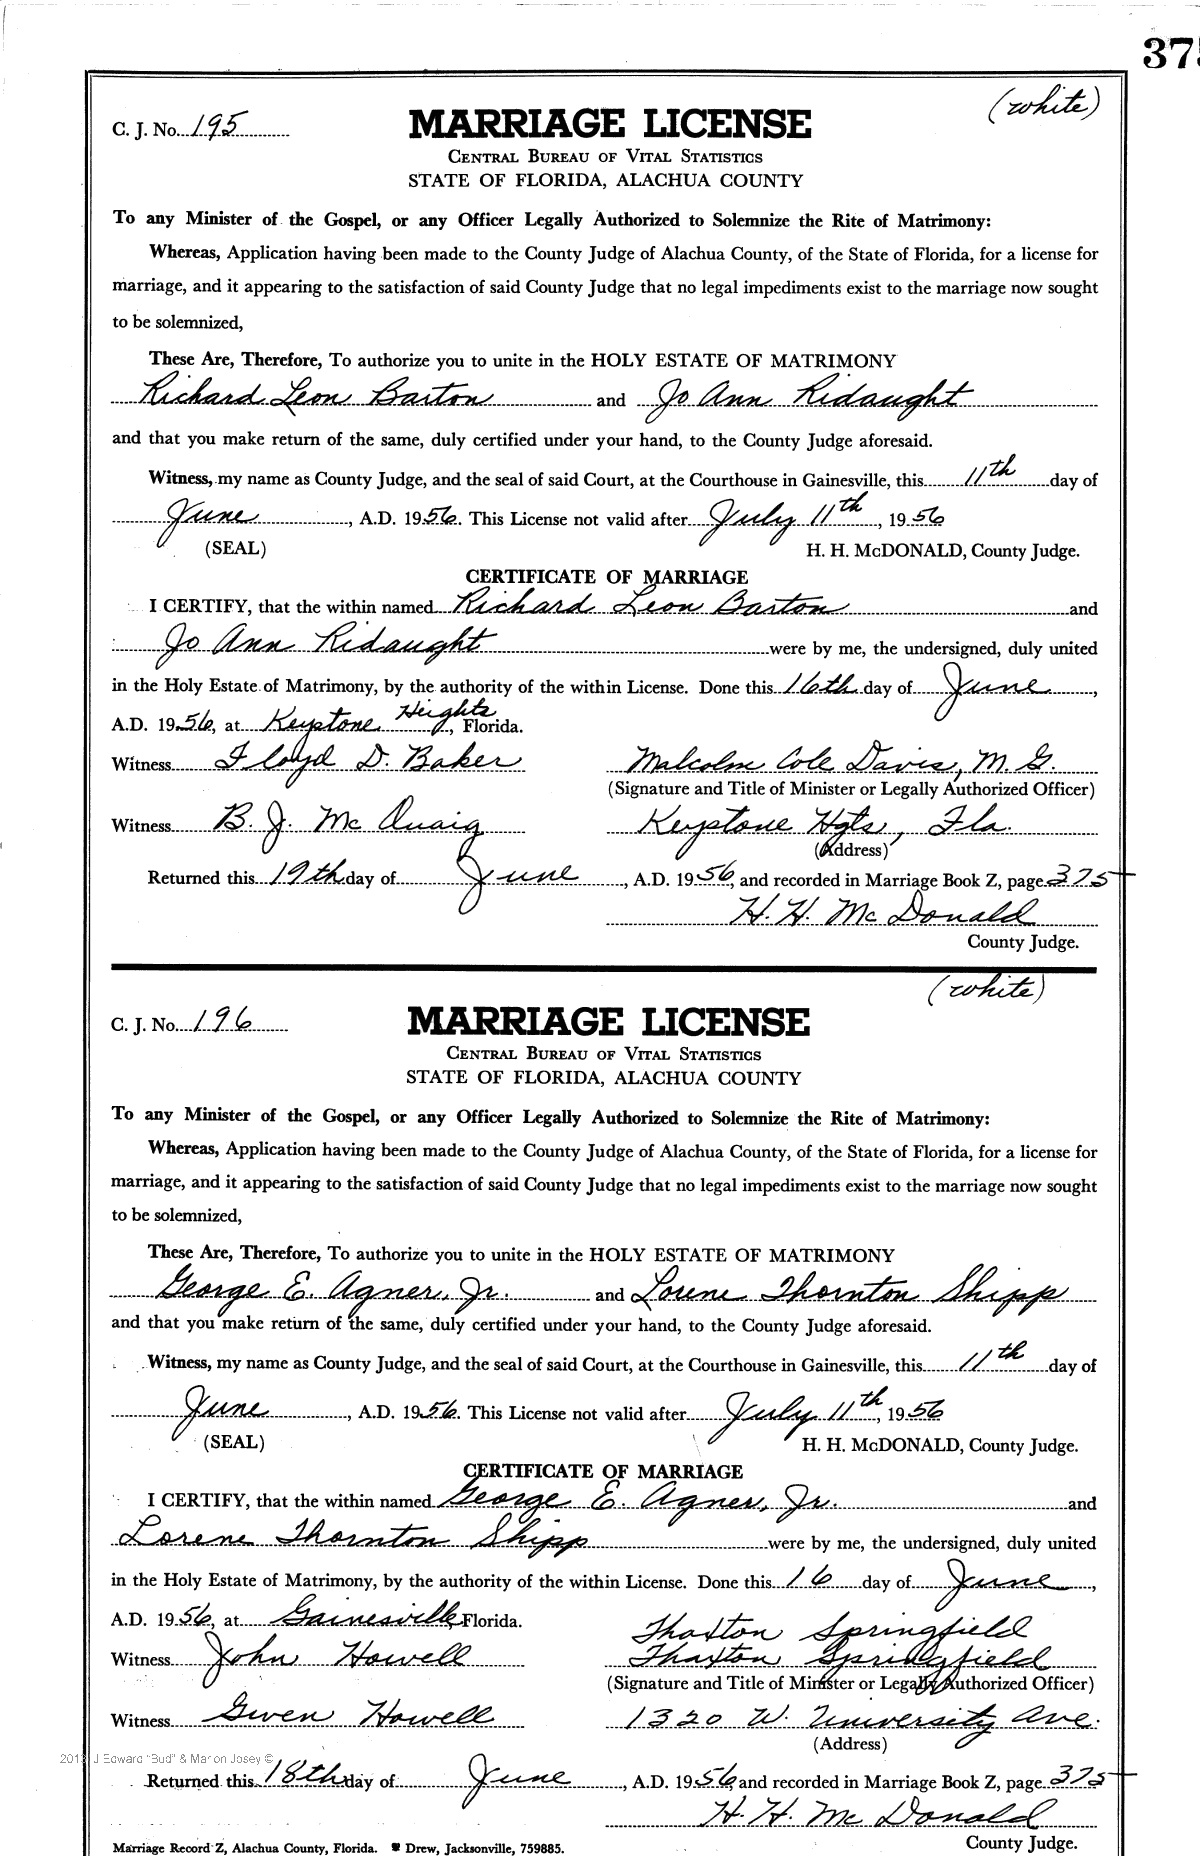 375
(white)
C. J. No. 195
MARRIAGE LICENSE
CENTRAL BUREAU OF VITAL STATISTICS
STATE OF FLORIDA, ALACHUA COUNTY
To any Minister of the Gospel, or any Officer Legally Authorized to Solemnize the Rite of Matrimony:
Whereas, Application having been made to the County Judge of Alachua County, of the State of Florida, for a license for
marriage, and it appearing to the satisfaction of said County Judge that no legal impediments exist to the marriage now sought
to be solemnized,
These Are, Therefore, To authorize you to unite in the HOLY ESTATE OF MATRIMONY
Richard Leon Barton and Jo Ann Ridaught
and that you make return of the same, duly certified under your hand, to the County Judge aforesaid.
Witness, my name as County Judge, and the seal of said Court, at the Courthouse in Gainesville, this 11th day of
June, A.D. 1956. This License not valid after July 11th, 1956
(SEAL) H. H. McDONALD, County Judge.
CERTIFICATE OF MARRIAGE
I CERTIFY, that the within named Richard Leon Barton and
Jo Ann Ridaught were by me, the undersigned, duly united
in the Holy Estate of Matrimony, by the authority of the within License. Done this 16th day of June,
A.D. 1956, at Keystone Heights, Florida.
Witness Floyd D. Baker Malcolm Cole Davis, M. G.
(Signature and Title of Minister or Legally Authorized Officer)
Witness B. J. McQuaig Keystone Hgts, Fla.
(Address)
Returned this 19th day of June, A.D. 1956, and recorded in Marriage Book Z, page 375
H. H. McDonald
County Judge.
(white)
C. J. No. 196
MARRIAGE LICENSE
CENTRAL BUREAU OF VITAL STATISTICS
STATE OF FLORIDA, ALACHUA COUNTY
To any Minister of the Gospel, or any Officer Legally Authorized to Solemnize the Rite of Matrimony:
Whereas, Application having been made to the County Judge of Alachua County, of the State of Florida, for a license for
marriage, and it appearing to the satisfaction of said County Judge that no legal impediments exist to the marriage now sought
to be solemnized,
These Are, Therefore, To authorize you to unite in the HOLY ESTATE OF MATRIMONY
George E. Agner, Jr. and Lorene Thornton Shipp
and that you make return of the same, duly certified under your hand, to the County Judge aforesaid.
Witness, my name as County Judge, and the seal of said Court, at the Courthouse in Gainesville, this 11th day of
June, A.D. 1956. This License not valid after July 11th, 1956
(SEAL) H. H. McDONALD, County Judge.
CERTIFICATE OF MARRIAGE
I CERTIFY, that the within named George E. Agner, Jr. and
Lorene Thornton Shipp were by me, the undersigned, duly united
in the Holy Estate of Matrimony, by the authority of the within License. Done this 16 day of June,
A.D. 1956, at Gainesville, Florida.
Thaxton Springfield
Witness John Howell Thaxton Springfield
(Signature and Title of Minister or Legally Authorized Officer)
Witness Gwen Howell 1320 W. University Ave.
(Address)
J Edward "Bud" & Marion Josey ©
Returned this 18th day of June, A.D. 1956 and recorded in Marriage Book Z, page 375
H. H. McDonald
County Judge.
Marriage Record Z, Alachua County, Florida. Drew, Jacksonville, 759885.